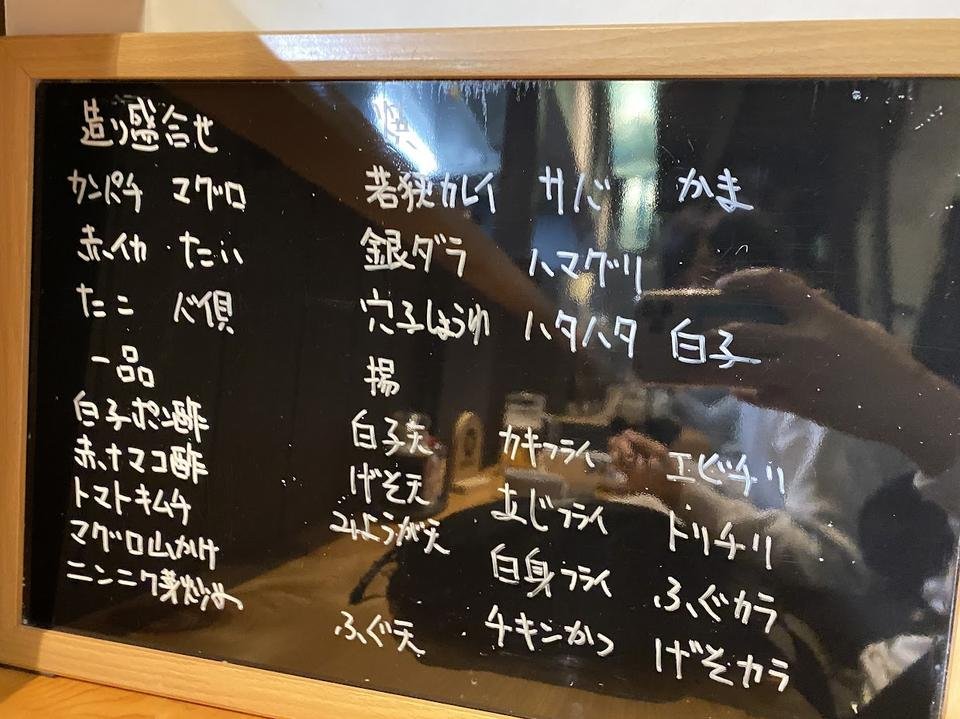 造り盛合せ
カンパチ マグロ
赤イカ たい
たこ バイ貝
一品
白子ポン酢
赤ナマコ酢
トマトキムチ
マグロ山かけ
ニンニク芽炒め
焼
若狭カレイ サバ かま
銀ダラ ハマグリ
穴子しょうゆ ハタハタ 白子
揚
白子天 カキフライ エビチリ
げそ天 あじフライ トリチリ
みょうが天 白身フライ ふぐカラ
ふぐ天 チキンかつ げそカラ